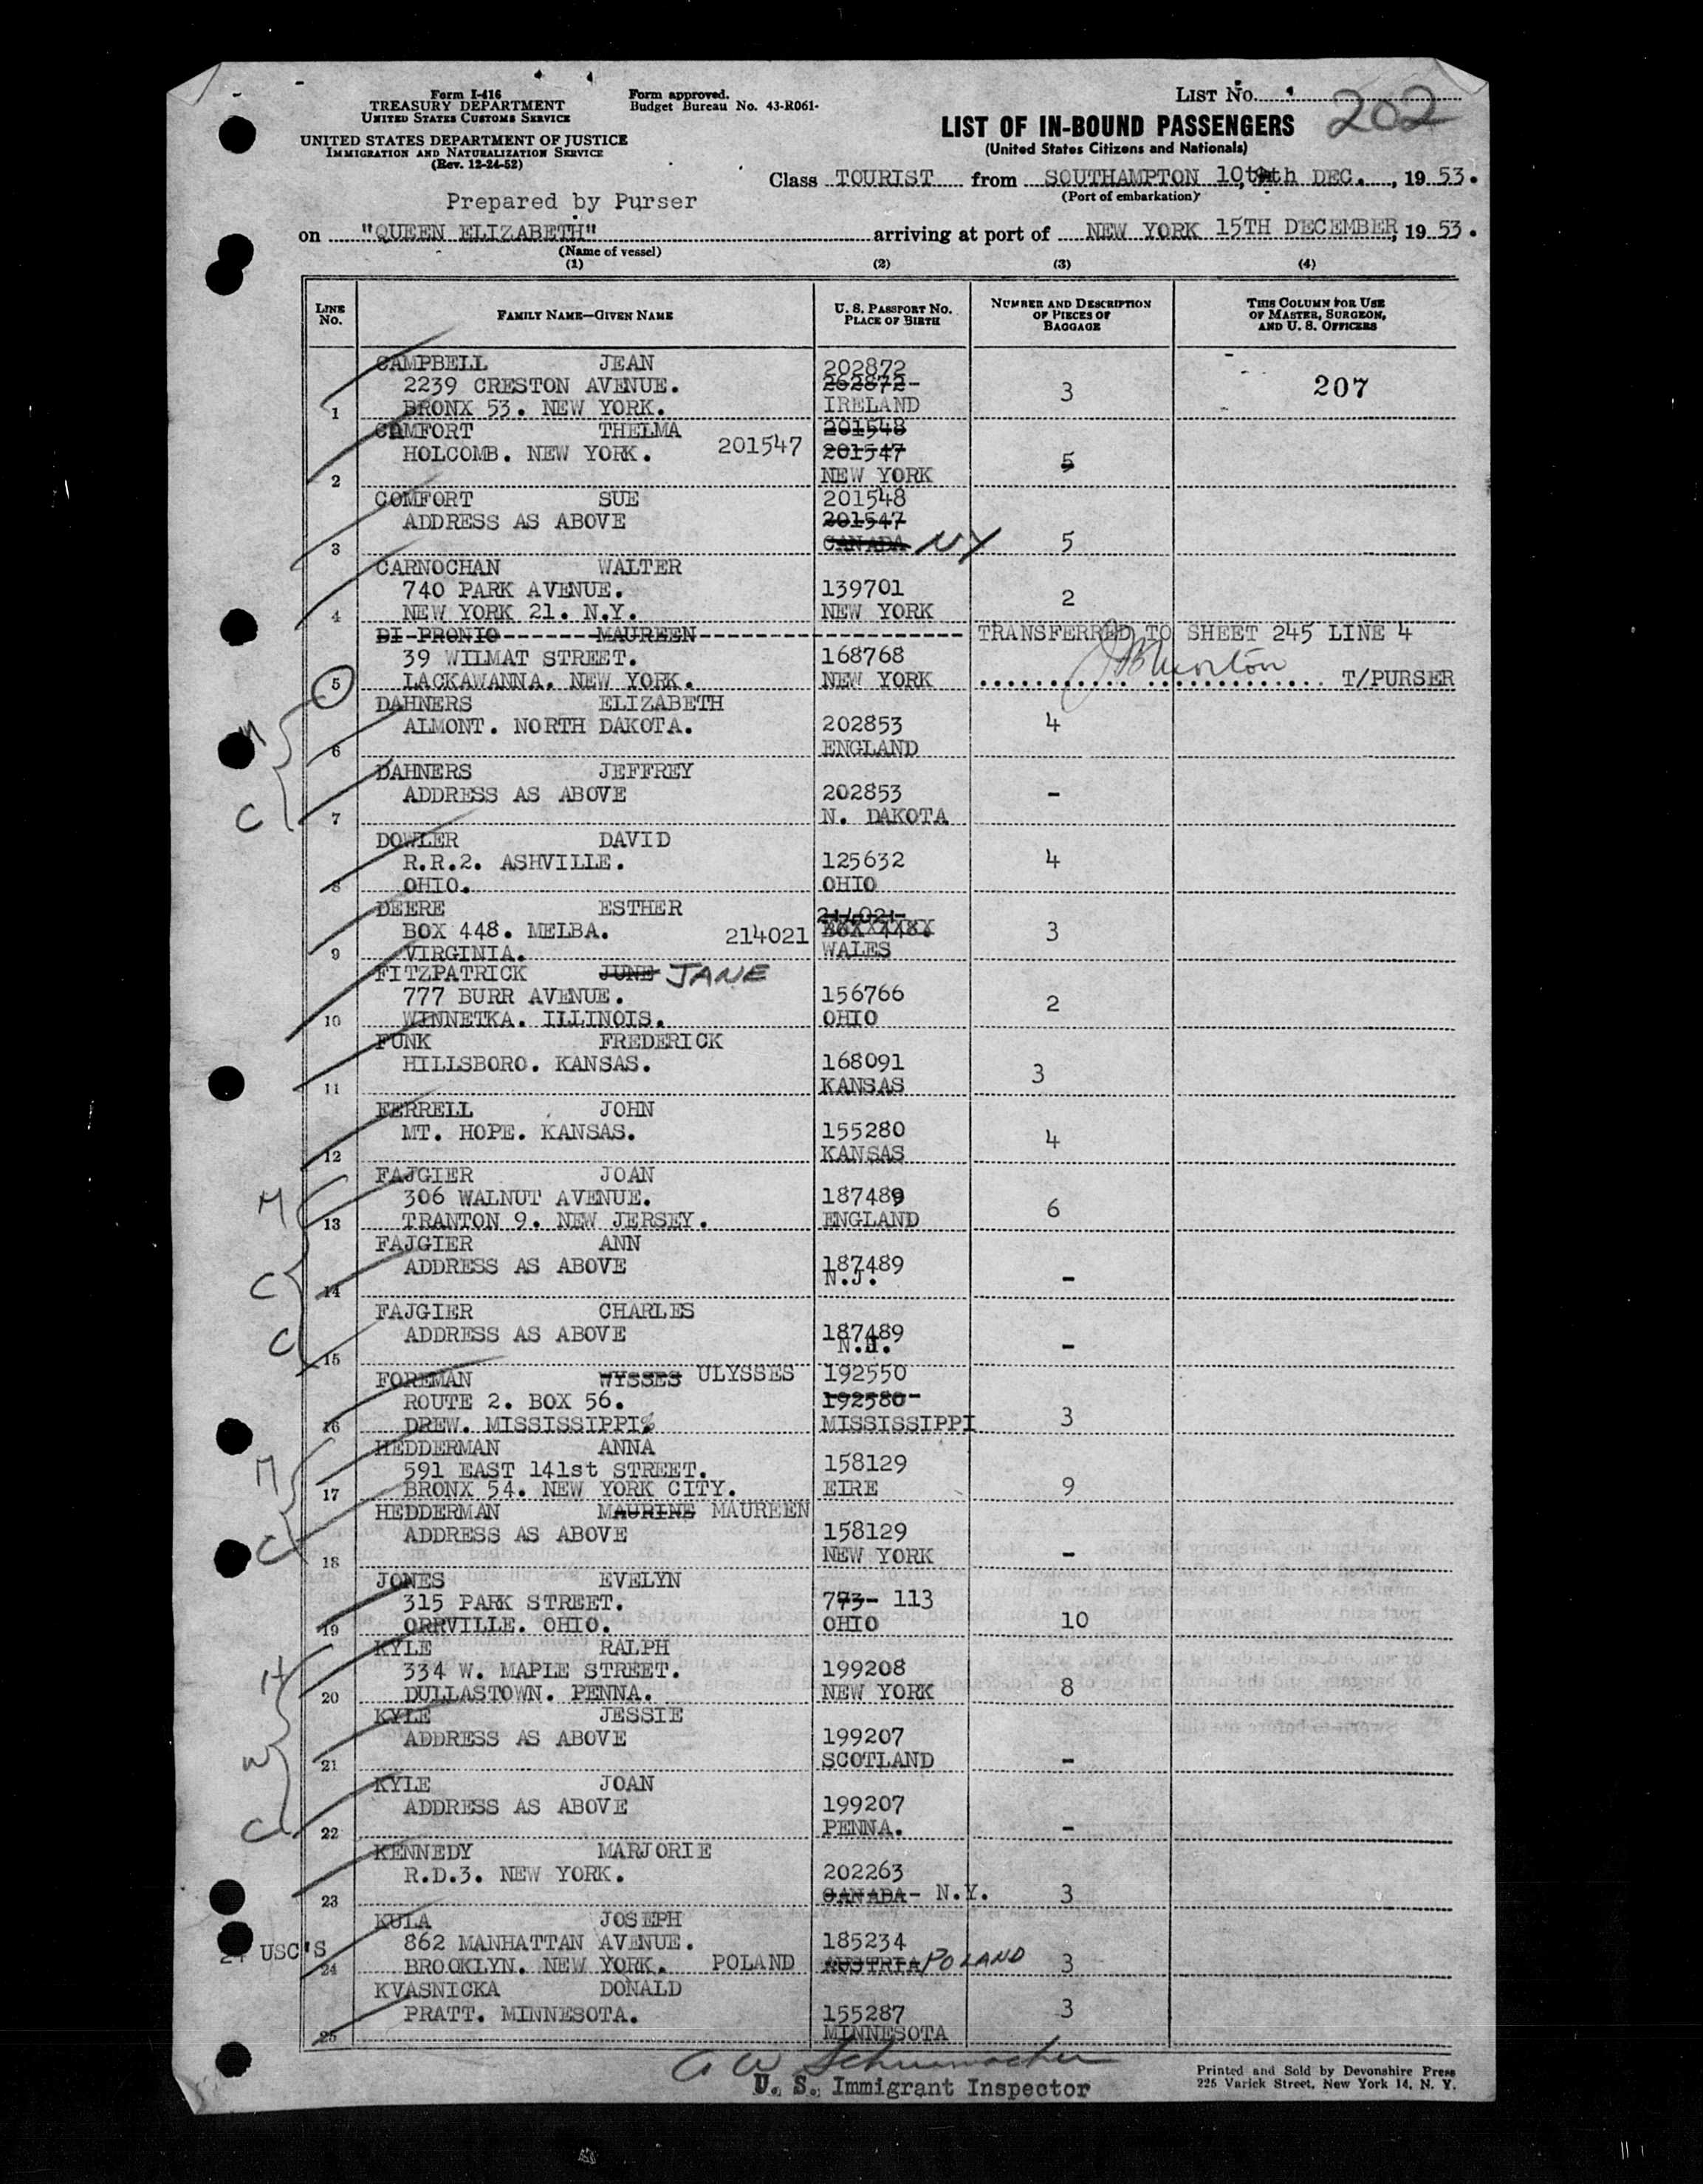 Form I-416
TREASURY DEPARTMENT
UNITED STATES CUSTOMS SERVICE
UNITED STATES DEPARTMENT OF JUSTICE
IMMIGRATION AND NATURALIZATION SERVICE
(Rev. 12-24-52)
Form approved.
Budget Bureau No. 43-R061-
LIST NO. 202
LIST OF IN-BOUND PASSENGERS
(United States Citizens and Nationals)
Class TOURIST from SOUTHAMPTON 10th DEC., 19 53.
(Port of embarkation)
Prepared by Purser
on "QUEEN ELIZABETH" arriving at port of NEW YORK 15TH DECEMBER, 19 53.
(Name of vessel)
(1) (2) (3) (4)
LINE NO.
FAMILY NAME—GIVEN NAME
U. S. PASSPORT NO.
PLACE OF BIRTH
NUMBER AND DESCRIPTION
OF PIECES OF
BAGGAGE
THIS COLUMN FOR USE
OF MASTER, SURGEON,
AND U. S. OFFICERS
CAMPBELL JEAN 202872
2239 CRESTON AVENUE. 262872- 3 207
1 BRONX 53. NEW YORK. IRELAND
COMFORT THELMA 201548
HOLCOMB. NEW YORK. 201547 201547 5
2 NEW YORK
COMFORT SUE 201548
ADDRESS AS ABOVE 201547
3 CANADA NY 5
CARNOCHAN WALTER
740 PARK AVENUE. 139701 2
4 NEW YORK 21. N.Y. NEW YORK
DI PRONIO MAUREEN TRANSFERRED TO SHEET 245 LINE 4
39 WILMAT STREET. 168768
5 LACKAWANNA. NEW YORK. NEW YORK T/PURSER
DAHNERS ELIZABETH
M ALMONT. NORTH DAKOTA. 202853 4
6 ENGLAND
DAHNERS JEFFREY
ADDRESS AS ABOVE 202853 -
C 7 N. DAKOTA
DOWLER DAVID
R.R.2. ASHVILLE. 125632 4
8 OHIO. OHIO
DEERE ESTHER 214021-
BOX 448. MELBA. 214021 BOX 448. 3
9 VIRGINIA. WALES
FITZPATRICK JUNE JANE
777 BURR AVENUE. 156766 2
10 WINNETKA. ILLINOIS. OHIO
FUNK FREDERICK
HILLSBORO. KANSAS. 168091 3
11 KANSAS
FERRELL JOHN
MT. HOPE. KANSAS. 155280 4
12 KANSAS
FAJGIER JOAN
M 306 WALNUT AVENUE. 187489 6
13 TRANTON 9. NEW JERSEY. ENGLAND
FAJGIER ANN
C ADDRESS AS ABOVE 187489 -
14 N.J.
FAJGIER CHARLES
C ADDRESS AS ABOVE 187489 -
15 N.J.
FOREMAN WYSSES ULYSSES 192550
ROUTE 2. BOX 56. 192580-
16 DREW. MISSISSIPPI. MISSISSIPPI 3
HEDDERMAN ANNA
M 591 EAST 141st STREET. 158129
17 BRONX 54. NEW YORK CITY. EIRE 9
HEDDERMAN MAURINE MAUREEN
C ADDRESS AS ABOVE 158129
18 NEW YORK -
JONES EVELYN
315 PARK STREET. 773- 113
19 ORRVILLE. OHIO. OHIO 10
KYLE RALPH
H 334 W. MAPLE STREET. 199208
20 DULLASTOWN. PENNA. NEW YORK 8
KYLE JESSIE
W ADDRESS AS ABOVE 199207
21 SCOTLAND -
KYLE JOAN
ADDRESS AS ABOVE 199207
C 22 PENNA. -
KENNEDY MARJORIE
R.D.3. NEW YORK. 202263
23 CANADA- N.Y. 3
KULA JOSEPH
24 USC'S 862 MANHATTAN AVENUE. 185234
24 BROOKLYN. NEW YORK. POLAND AUSTRIA POLAND 3
KVASNICKA DONALD
PRATT. MINNESOTA. 155287 3
25 MINNESOTA
A W Schumacher
U. S. Immigrant Inspector
Printed and Sold by Devonshire Press
225 Varick Street, New York 14, N. Y.